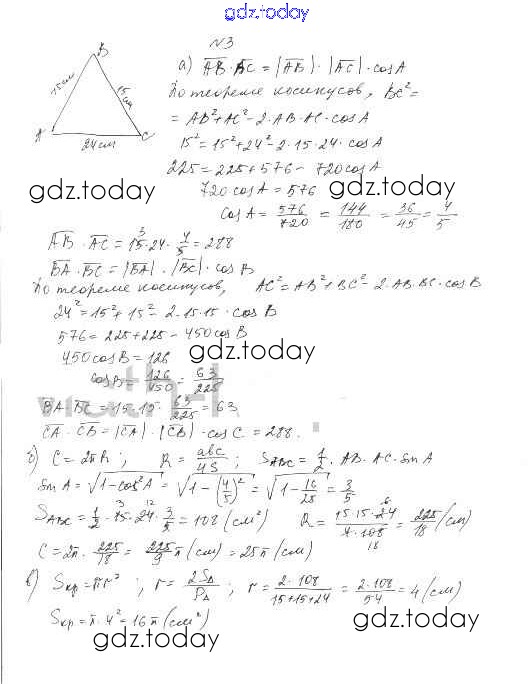 gdz.today
N3
B
15см
15см
A
C
24см
а) AB·BC = |AB|·|AC|·cosA
По теореме косинусов, BC²=
= AB²+AC²-2·AB·AC·cosA
15²=15²+24²-2·15·24·cosA
225=225+576-720cosA
720cosA=576
gdz.today
gdz.today
cosA = 576/720 = 144/180 = 36/45 = 4/5
AB·AC = 15·24·4/5 = 288
BA·BC = |BA|·|BC|·cosB
По теореме косинусов, AC²=AB²+BC²-2·AB·BC·cosB
24²=15²+15²-2·15·15·cosB
576=225+225-450cosB
450cosB=126
gdz.today
cosB = 126/450 = 63/225
BA·BC = 15·15·63/225 = 63
CA·CB = |CA|·|CB|·cosC = 288.
б) C=2πR; R = abc/4S; S ABC = 1/2·AB·AC·sinA
sinA = √1-cos²A = √1-(4/5)² = √1-16/25 = 3/5
S ABC = 1/2·15·24·3/5 = 108 (см²) R = 15·15·24/4·108 = 225/18 (см)
C=2π·225/18 = 225/9 π (см) = 25π (см)
в) Sкр=πr²; r = 2S△/P△; r = 2·108/15+15+24 = 2·108/54 = 4 (см)
Sкр=π·4²=16π (см²)
gdz.today
gdz.today